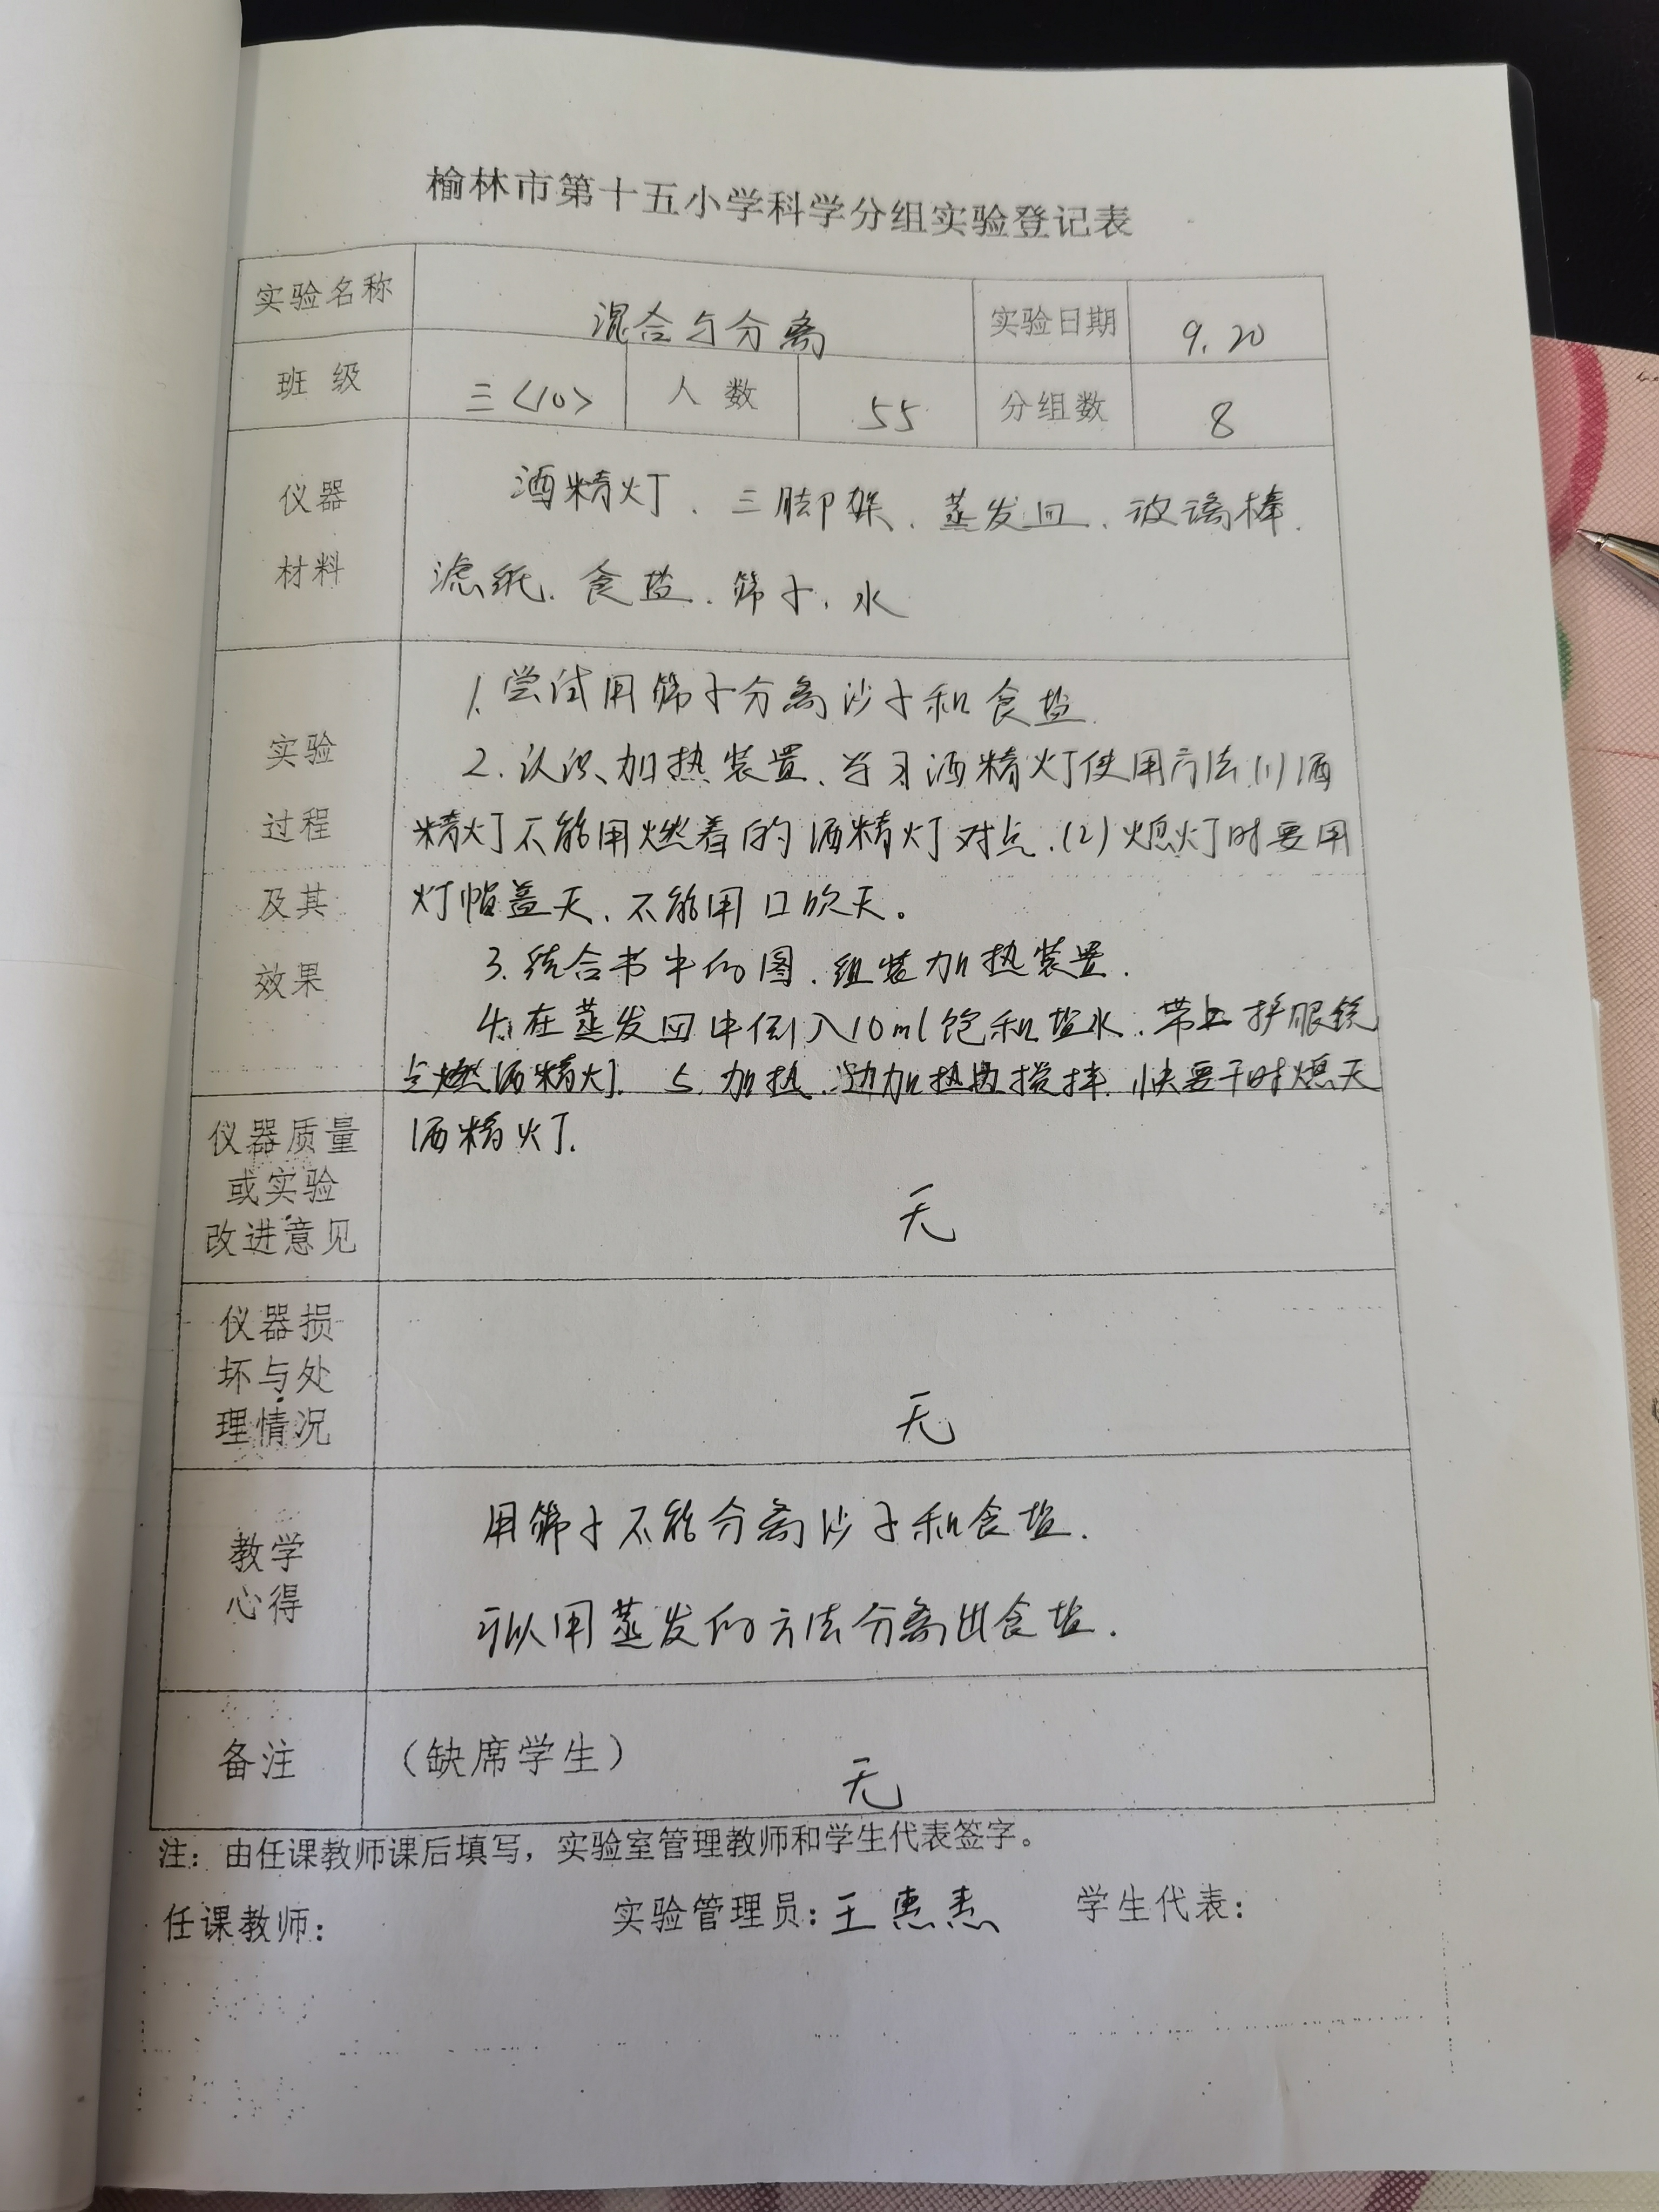 榆林市第十五小学科学分组实验登记表
实验名称 混合与分离 实验日期 9.20
班级 三<10> 人数 55 分组数 8
仪器 酒精灯、三脚架、蒸发皿、玻璃棒、
材料 滤纸、食盐、筛子、水
1.尝试用筛子分离沙子和食盐
实验 2.认识加热装置、学习酒精灯使用方法(1)酒
过程 精灯不能用燃着的酒精灯对点.(2)熄灯时要用
及其 灯帽盖灭、不能用口吹灭。
效果 3.结合书中的图、组装加热装置.
4.在蒸发皿中倒入10ml饱和盐水.带上护眼镜
点燃酒精灯. 5.加热.边加热边搅拌.快要干时熄灭
仪器质量 酒精灯.
或实验 无
改进意见
仪器损
坏与处
理情况 无
用筛子不能分离沙子和食盐.
教学
心得
可以用蒸发的方法分离出食盐.
备注 (缺席学生) 无
注：由任课教师课后填写，实验室管理教师和学生代表签字。
任课教师： 实验管理员：王 学生代表：